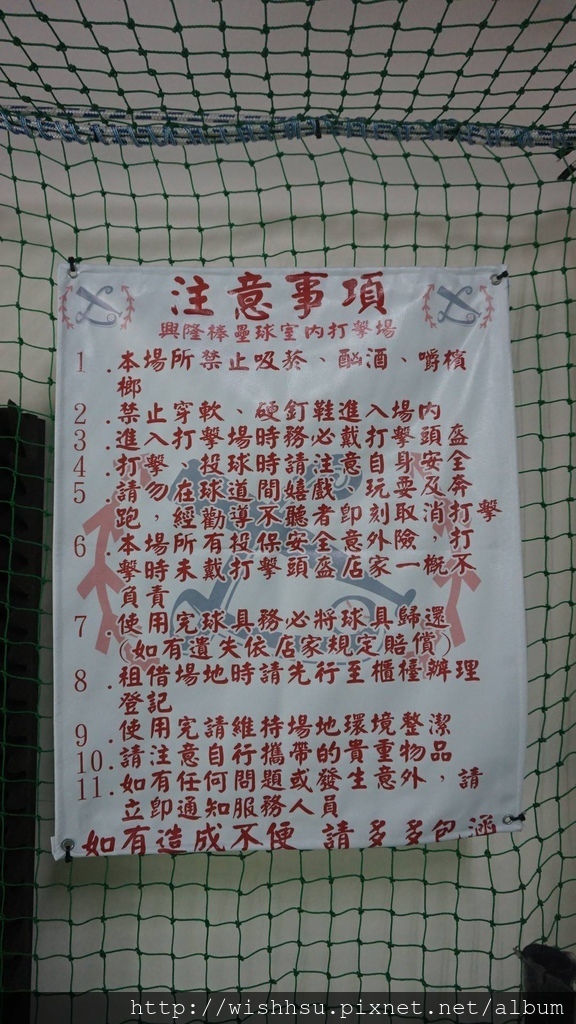 注意事項
興隆棒壘球室內打擊場
1.本場所禁止吸菸、酗酒、嚼檳
榔
2.禁止穿軟、硬釘鞋進入場內
3.進入打擊場時務必戴打擊頭盔
4.打擊 投球時請注意自身安全
5.請勿在球道間嬉戲 玩耍及奔
跑，經勸導不聽者即刻取消打擊
6.本場所有投保安全意外險 打
擊時未戴打擊頭盔店家一概不
負責
7.使用完球具務必將球具歸還
(如有遺失依店家規定賠償)
8.租借場地時請先行至櫃檯辦理
登記
9.使用完請維持場地環境整潔
10.請注意自行攜帶的貴重物品
11.如有任何問題或發生意外，請
立即通知服務人員
如有造成不便 請多多包涵
http://wishhsu.pixnet.net/album